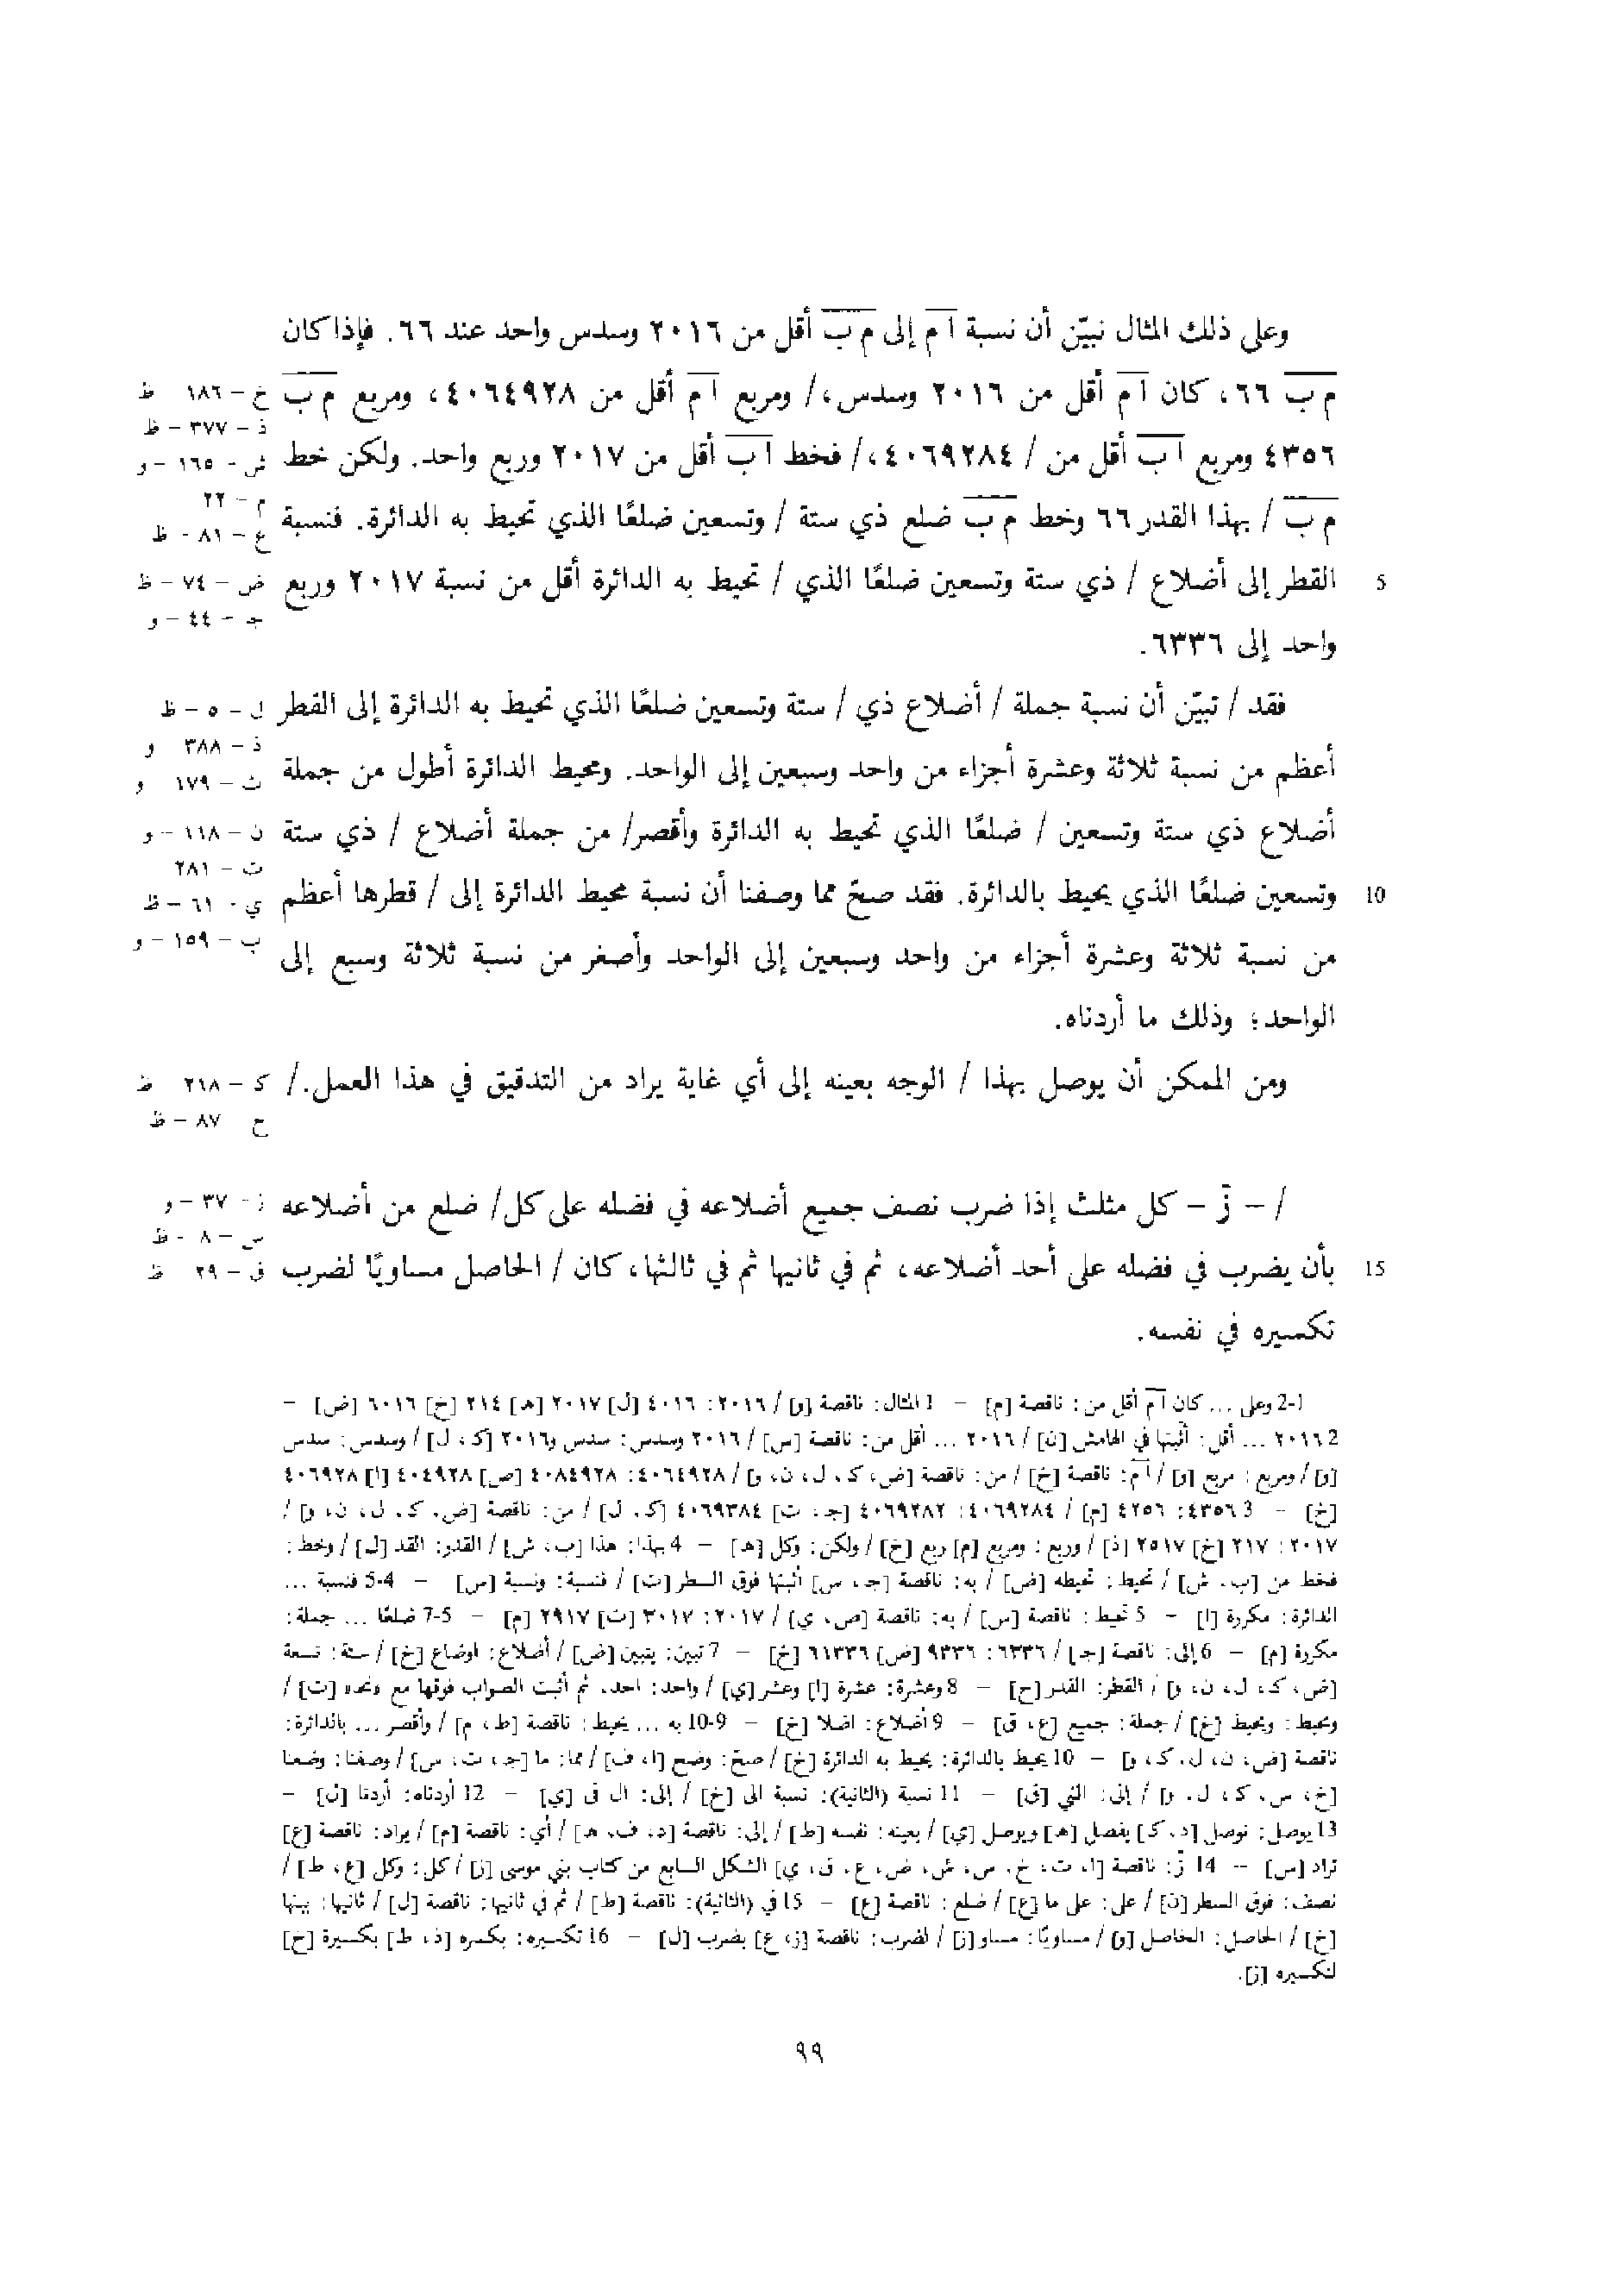 وعلى ذلك المثال نبيّن أن نسبة ا م إلى م ب أقل من ٢٠١٦ وسدس واحد عند ٦٦. فإذا كان
م ب ٦٦، كان ا م أقل من ٢٠١٦ وسدس،/ ومربع ا م أقل من ٤٠٦٤٩٢٨، ومربع م ب
خ – ١٨٦ ظ
ذ – ٣٧٧ – ظ
٤٣٥٦ ومربع ا ب أقل من / ٤٠٦٩٢٨٤،/ فخط ا ب أقل من ٢٠١٧ وربع واحد. ولكن خط
ش – ١٦٥ – و
م – ٢٢
م ب / بهذا القدر ٦٦ وخط م ب ضلع ذي ستة / وتسعين ضلعًا الذي تحيط به الدائرة. فنسبة
ع – ٨١ – ظ
5 القطر إلى أضلاع / ذي ستة وتسعين ضلعًا الذي / تحيط به الدائرة أقل من نسبة ٢٠١٧ وربع
ض – ٧٤ – ظ
جـ – ٤٤ – و
واحد إلى ٦٣٣٦.
فقد / تبيّن أن نسبة جملة / أضلاع ذي / ستة وتسعين ضلعًا الذي تحيط به الدائرة إلى القطر
ل – ٥ – ظ
ذ – ٣٨٨ و
أعظم من نسبة ثلاثة وعشرة أجزاء من واحد وسبعين إلى الواحد. ومحيط الدائرة أطول من جملة
ث – ١٧٩ و
أضلاع ذي ستة وتسعين / ضلعًا الذي تحيط به الدائرة وأقصر/ من جملة أضلاع / ذي ستة
ن – ١١٨ – و
ت – ٢٨١
10 وتسعين ضلعًا الذي يحيط بالدائرة. فقد صحّ مما وصفنا أن نسبة محيط الدائرة إلى / قطرها أعظم
ي – ٦١ – ظ
ب – ١٥٩ – و
من نسبة ثلاثة وعشرة أجزاء من واحد وسبعين إلى الواحد وأصغر من نسبة ثلاثة وسبع إلى
الواحد؛ وذلك ما أردناه.
ومن الممكن أن يوصل بهذا / الوجه بعينه إلى أي غاية يراد من التدقيق في هذا العمل./
كـ – ٢١٨ ظ
ح ٨٧ – ظ
/ – زَ – كل مثلث إذا ضرب نصف جميع أضلاعه في فضله على كل/ ضلع من أضلاعه
ز – ٣٧ – و
س – ٨ – ظ
15 بأن يضرب في فضله على أحد أضلاعه، ثم في ثانيها ثم في ثالثها، كان / الحاصل مساويًا لضرب
ق – ٢٩ ظ
تكسيره في نفسه.
1-2 وعلى ... كان ا م أقل من: ناقصة [م] – 1 المثال: ناقصة [و] / ٢٠١٦: ٤٠١٦ [ل] ٢٠١٧ [هـ] ٢١٤ [خ] ٦٠١٦ [ض] –
2 ٢٠١٦ ... أقل: أثبتها في الهامش [ن] / ٢٠١٦ ... أقل من: ناقصة [س] / ٢٠١٦ وسدس: سدس و٢٠١٦ [ك، ل] / وسدس: سدس
[و] / ومربع: مربع [و] / ا م: ناقصة [خ] / من: ناقصة [ض، ك، ل، ن، و] / ٤٠٦٤٩٢٨: ٤٠٨٤٩٢٨ [ص] ٤٠٤٩٢٨ [ا] ٤٠٦٩٢٨
[خ] – 3 ٤٣٥٦: ٤٢٥٦ [م] / ٤٠٦٩٢٨٤: ٤٠٦٩٢٨٢ [جـ، ت] ٤٠٦٩٣٨٤ [ك، ل] / من: ناقصة [ض، ك، ل، ن، و] /
٢٠١٧: ٢١٧ [خ] ٢٥١٧ [ذ] / وربع: ومربع [م] ربع [خ] / ولكن: وكل [هـ] – 4 بهذا: هذا [ب، ش] / القدر: القد [ل] / وخط:
فخط من [ب، ش] / تحيط: تحيطه [ض] / به: ناقصة [جـ، س] أثبتها فوق السطر [ت] / فنسبة: ونسبة [س] – 4-5 فنسبة ...
الدائرة: مكررة [ا] – 5 تحيط: ناقصة [س] / به: ناقصة [ص، ي] / ٢٠١٧: ٣٠١٧ [ت] ٢٩١٧ [م] – 5-7 ضلعًا ... جملة:
مكررة [م] – 6 إلى: ناقصة [جـ] / ٦٣٣٦: ٩٣٣٦ [ص] ٦١٣٣٦ [خ] – 7 تبين: يتبين [ض] / أضلاع: اوضاع [خ] / ستة: تسعة
[ض، ك، ل، ن، و] / القطر: القدر [ح] – 8 وعشرة: عشرة [ا] وعشر [ي] / واحد: احد، ثم أثبت الصواب فوقها مع [ت] /
ومحيط: ويحيط [خ] / جملة: جميع [ع، ق] – 9 أضلاع: اضلا [خ] – 9-10 به ... يحيط: ناقصة [ط، م] / وأقصر ... بالدائرة:
ناقصة [ض، ن، ل، ك، و] – 10 يحيط بالدائرة: يحيط به الدائرة [خ] / صحّ: وضح [ا، ف] / مما: ما [جـ، ت، س] / وصفنا: وضعنا
[خ، س، ك، ل، و] / إلى: التي [ق] – 11 نسبة (الثانية): نسبة الى [خ] / إلى: ال فى [ي] – 12 أردناه: أردنا [ن] –
13 يوصل: نوصل [د، ك] يفصل [هـ] ويوصل [ي] / بعينه: نفسه [ط] / إلى: ناقصة [د، ف، هـ] / أي: ناقصة [م] / يراد: ناقصة [ع]
تراد [س] – 14 زَ: ناقصة [ا، ت، خ، س، ش، ض، ع، ق، ي] الشكل السابع من كتاب بني موسى [ز] / كل: وكل [ع، ط] /
نصف: فوق السطر [ن] / على: على ما [ع] / ضلع: ناقصة [ع] – 15 في (الثانية): ناقصة [ط] / ثم في ثانيها: ناقصة [ل] / ثانيها: بينها
[خ] / الحاصل: الخاصل [و] / مساويًا: مساو [ز] / لضرب: ناقصة [ز، ع] بضرب [ل] – 16 تكسيره: بكسره [ذ، ط] بكسيرة [ح]
لتكسيره [ز].
٩٩